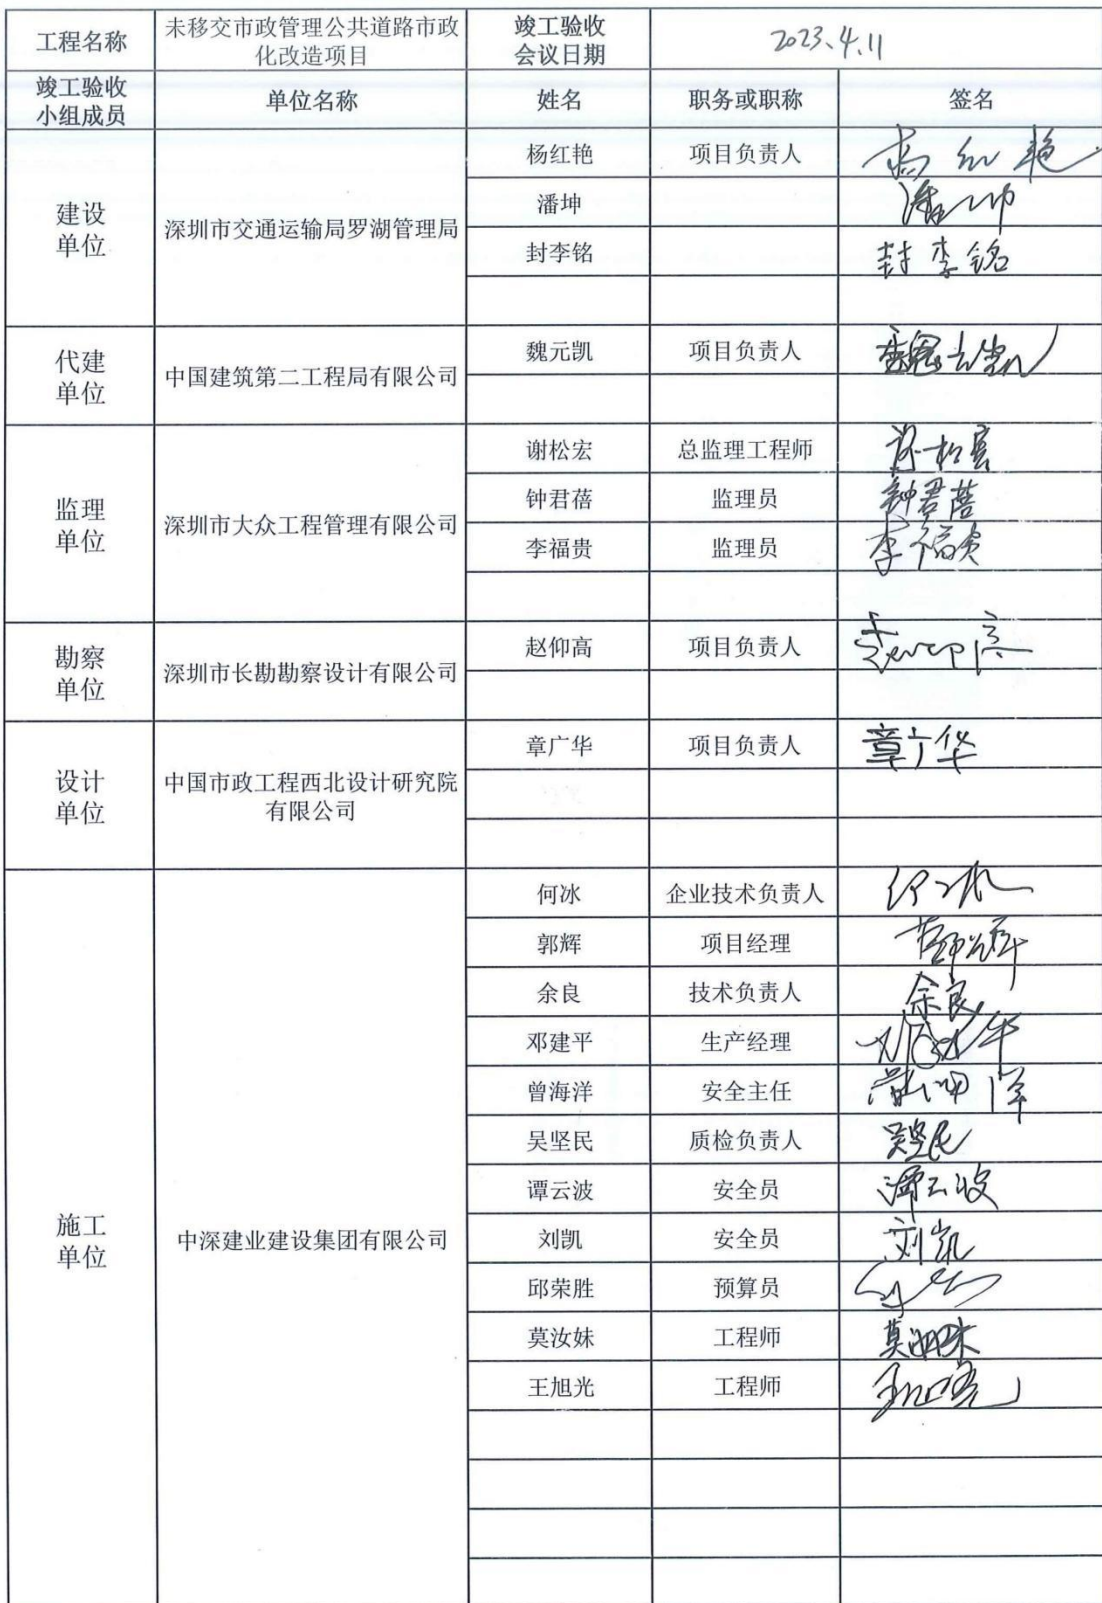 工程名称
未移交市政管理公共道路市政
化改造项目
竣工验收
会议日期
2023、4.11
竣工验收
小组成员
单位名称
姓名
职务或职称
签名
建设
单位
深圳市交通运输局罗湖管理局
杨红艳 项目负责人 杨红艳
潘坤
封李铭 封李铭
代建
单位
中国建筑第二工程局有限公司
魏元凯 项目负责人 魏元凯
监理
单位
深圳市大众工程管理有限公司
谢松宏 总监理工程师
钟君蓓 监理员 钟君蓓
李福贵 监理员 李福贵
勘察
单位
深圳市长勘勘察设计有限公司
赵仰高 项目负责人
设计
单位
中国市政工程西北设计研究院
有限公司
章广华 项目负责人 章广华
施工
单位
中深建业建设集团有限公司
何冰 企业技术负责人
郭辉 项目经理
余良 技术负责人 余良
邓建平 生产经理
曾海洋 安全主任
吴坚民 质检负责人 吴坚民
谭云波 安全员 谭云波
刘凯 安全员 刘凯
邱荣胜 预算员
莫汝妹 工程师 莫汝妹
王旭光 工程师